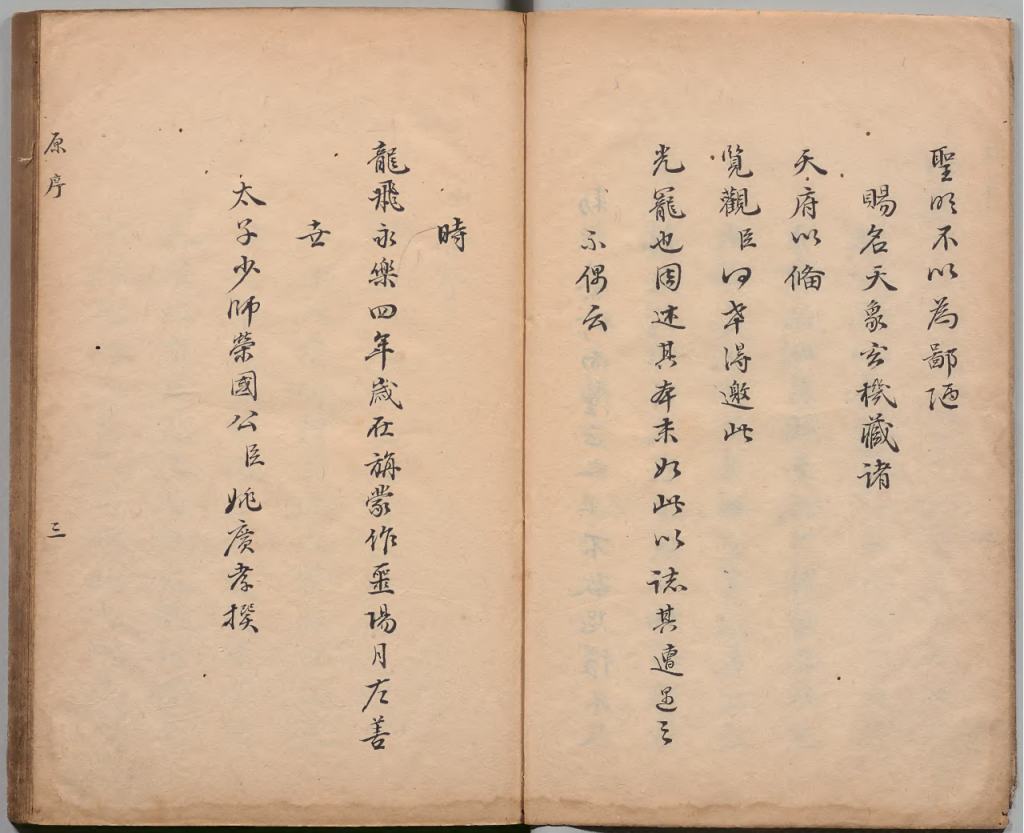 聖明不以為鄙陋
賜名天象玄機藏諸
天府以俻
覽觀臣何幸得邀此
光寵也因述其本末如此以誌其遭遇之
不偶云
時
龍飛永樂四年歲在旃蒙作噩陽月左善
世
太子少師榮國公臣姚廣孝撰
原序
三